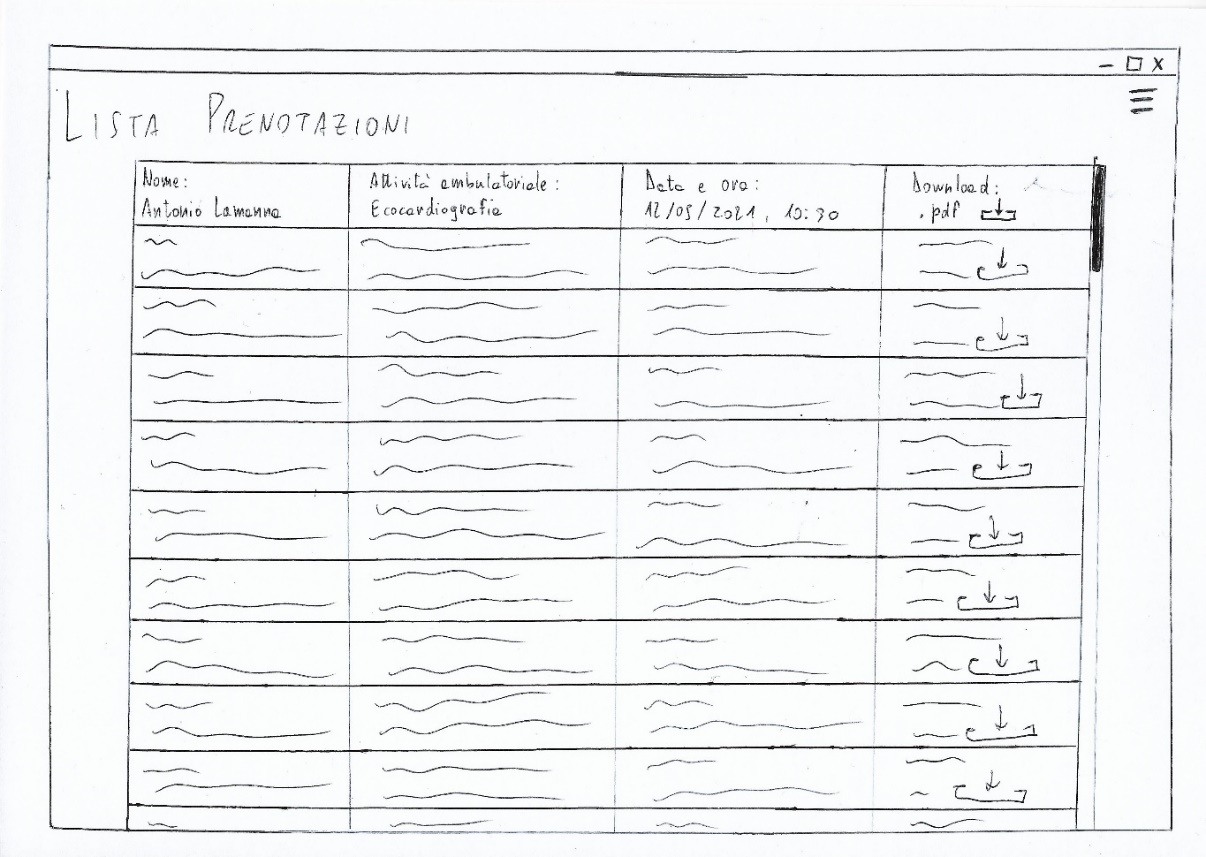 LISTA PRENOTAZIONI
Nome:
Antonio Lamanna
Attività ambulatoriale:
Ecocardiografia
Data e ora:
12/05/2021, 10:30
Download:
.pdf